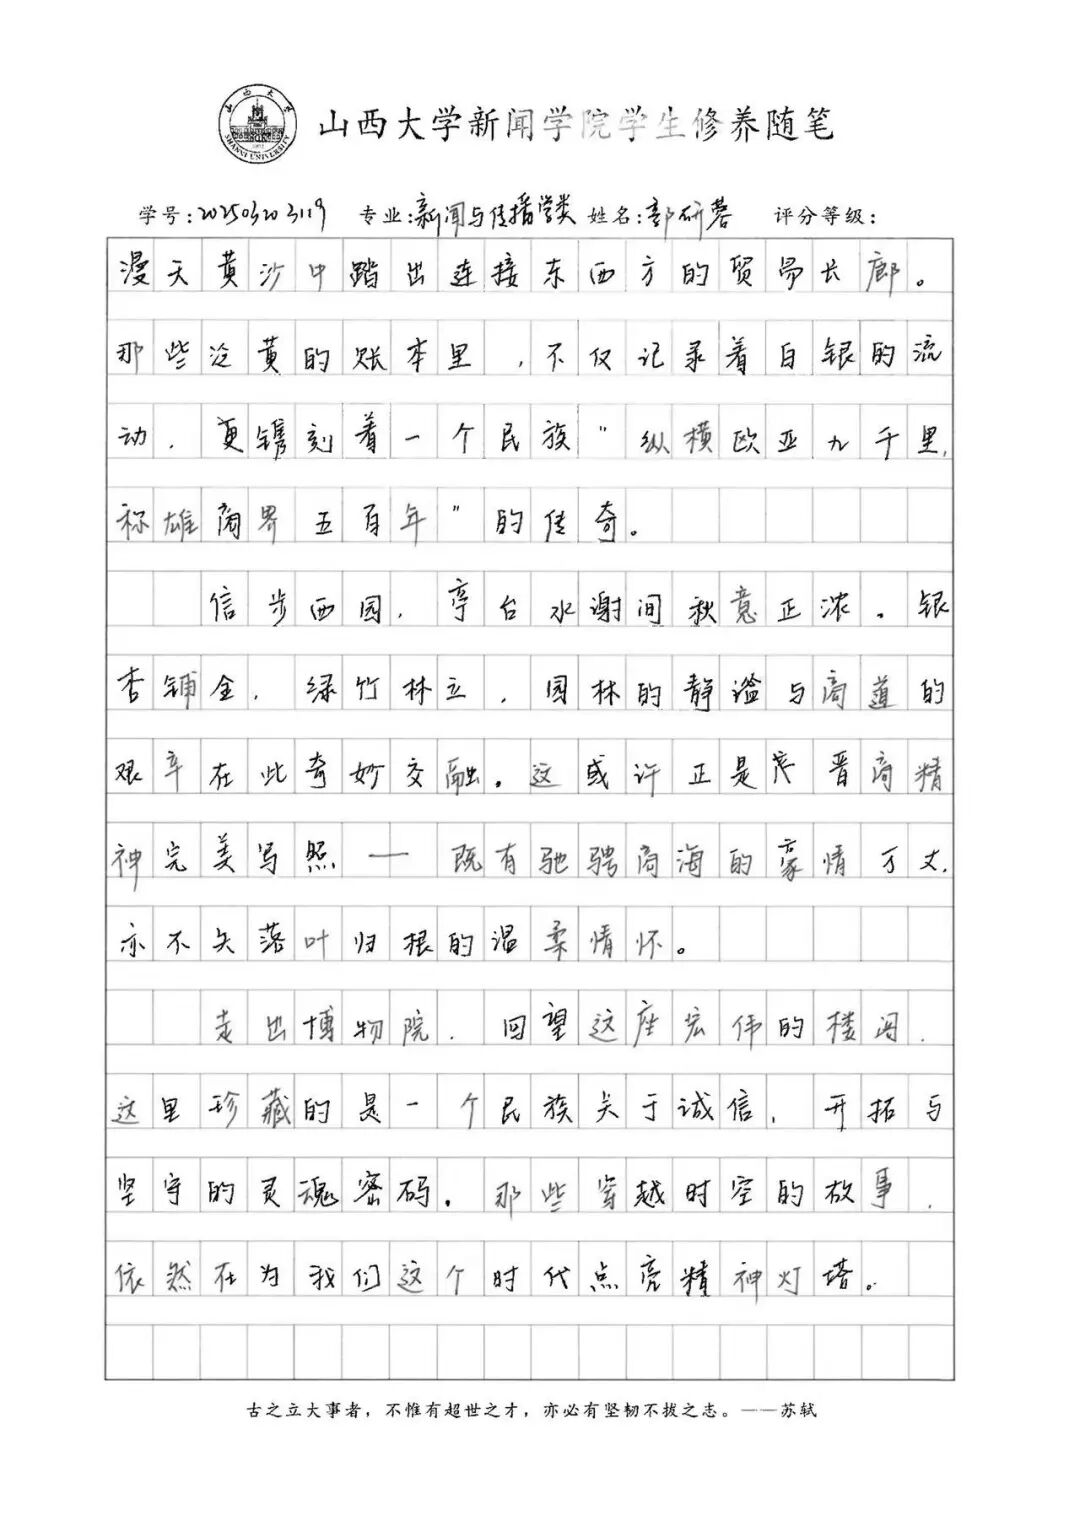 山西大学
SHANXI UNIVERSITY
1902
山西大学新闻学院学生修养随笔
学号:202503203119 专业:新闻与传播学类 姓名:郭研蓉 评分等级:
漫天黄沙中踏出连接东西方的贸易长廊。
那些泛黄的账本里，不仅记录着白银的流
动，更镌刻着一个民族“纵横欧亚九千里，
称雄商界五百年”的传奇。
信步西园，亭台水谢间秋意正浓。银
杏铺金，绿竹林立，园林的静谧与商道的
艰辛在此奇妙交融。这或许正是晋商精
神完美写照——既有驰骋商海的豪情万丈，
亦不失落叶归根的温柔情怀。
走出博物院，回望这座宏伟的楼阁，
这里珍藏的是一个民族关于诚信，开拓与
坚守的灵魂密码。那些穿越时空的故事，
依然在为我们这个时代点亮精神灯塔。
古之立大事者，不惟有超世之才，亦必有坚韧不拔之志。——苏轼